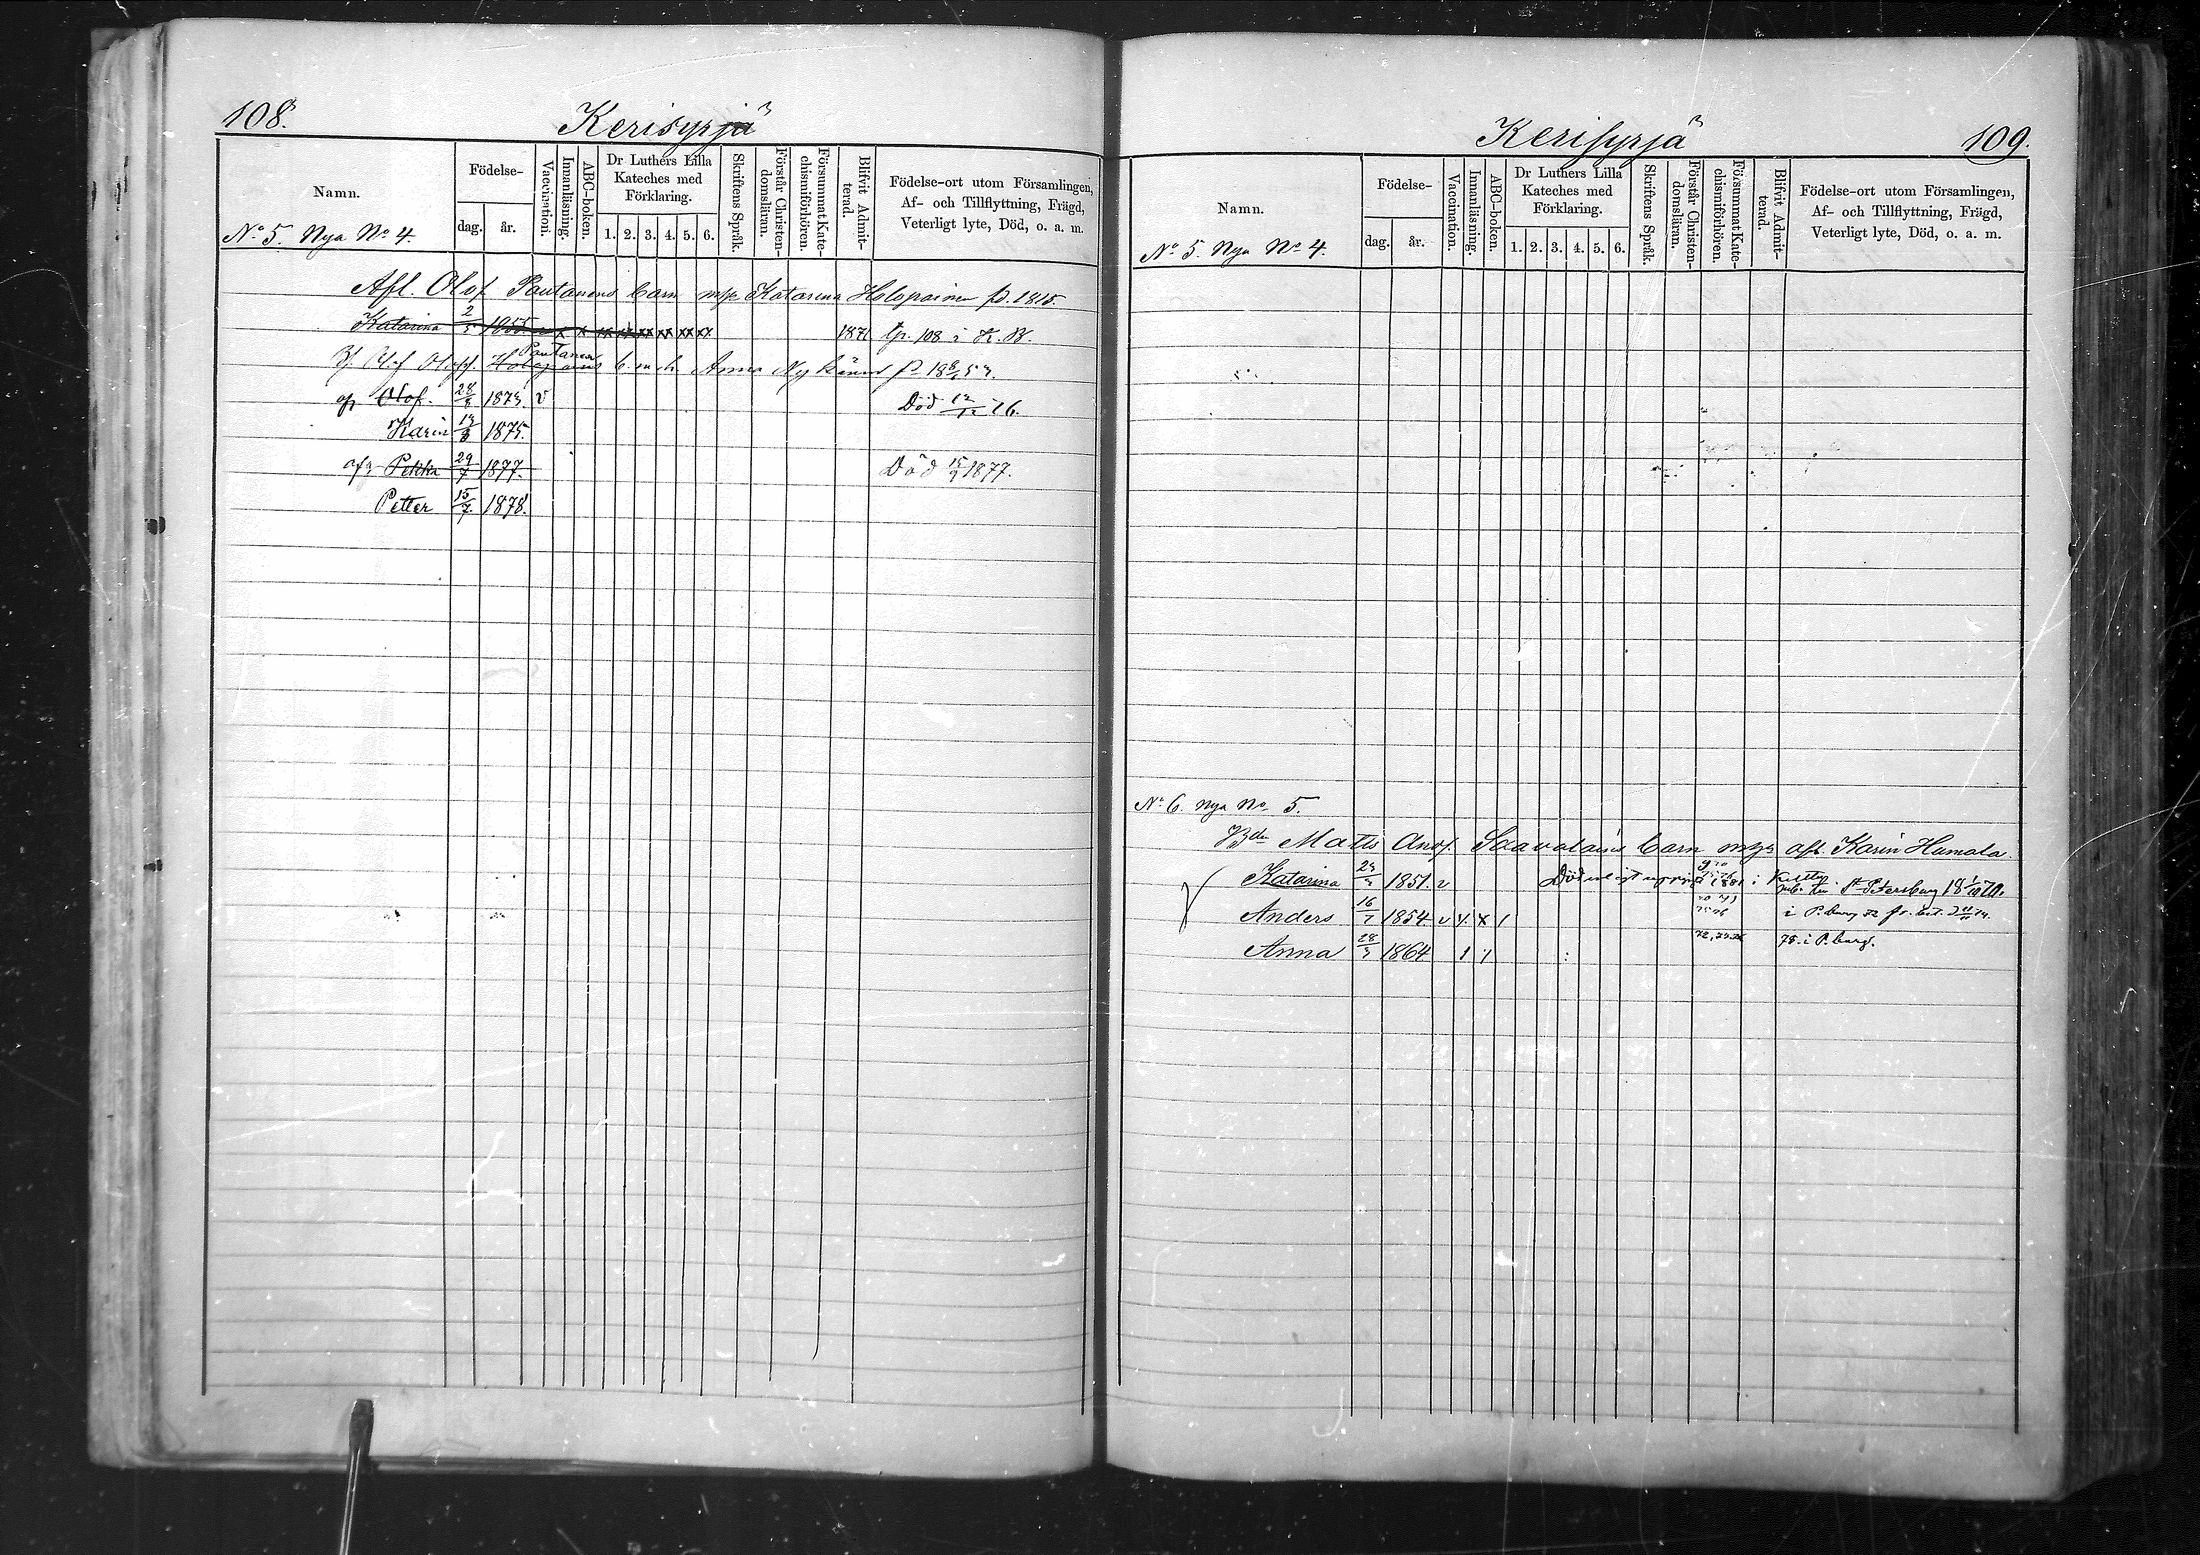 108. Kerisyrjä
Namn. Födelse- dag. år. Vaccination. Innanläsning. ABC-boken. Dr Luthers Lilla Kateches med Förklaring. 1. 2. 3. 4. 5. 6. Skriftens Språk. Förstår Christendomsläran. Försummat Katechismiförhören. Blifvit Admitterad. Födelse-ort utom Församlingen, Af- och Tillflyttning, Frägd, Veterligt lyte, Död, o. a. m.
No 5. Nya No 4.
Afl. Olof Pautanens barn Katarina Holopainen f. 1815.
Katarina 2/5 1855 x x xx xx xx xx xx xx 1871 108 i K. B.
Olof Pautanen b. m. h. Anna
Olof. 28/8 1873. v Död 76.
Karin 1875.
Pekka 29/7 1877. Död 15/9 1877.
Petter 15/7 1878.
Kerisyrjä 109.
Namn. Födelse- dag. år. Vaccination. Innanläsning. ABC-boken. Dr Luthers Lilla Kateches med Förklaring. 1. 2. 3. 4. 5. 6. Skriftens Språk. Förstår Christendomsläran. Försummat Katechismiförhören. Blifvit Admitterad. Födelse-ort utom Församlingen, Af- och Tillflyttning, Frägd, Veterligt lyte, Död, o. a. m.
No 5. Nya No 4.
No 6. Nya No 5.
Bdn Matts And. Saavalains barn afl. Karin Humala.
Katarina 1851. v Död enligt 1881 i St Petersburg
Anders 16/7 1854 v x i P.burg 72
Anna 28/3 1864 78. i P.burg.